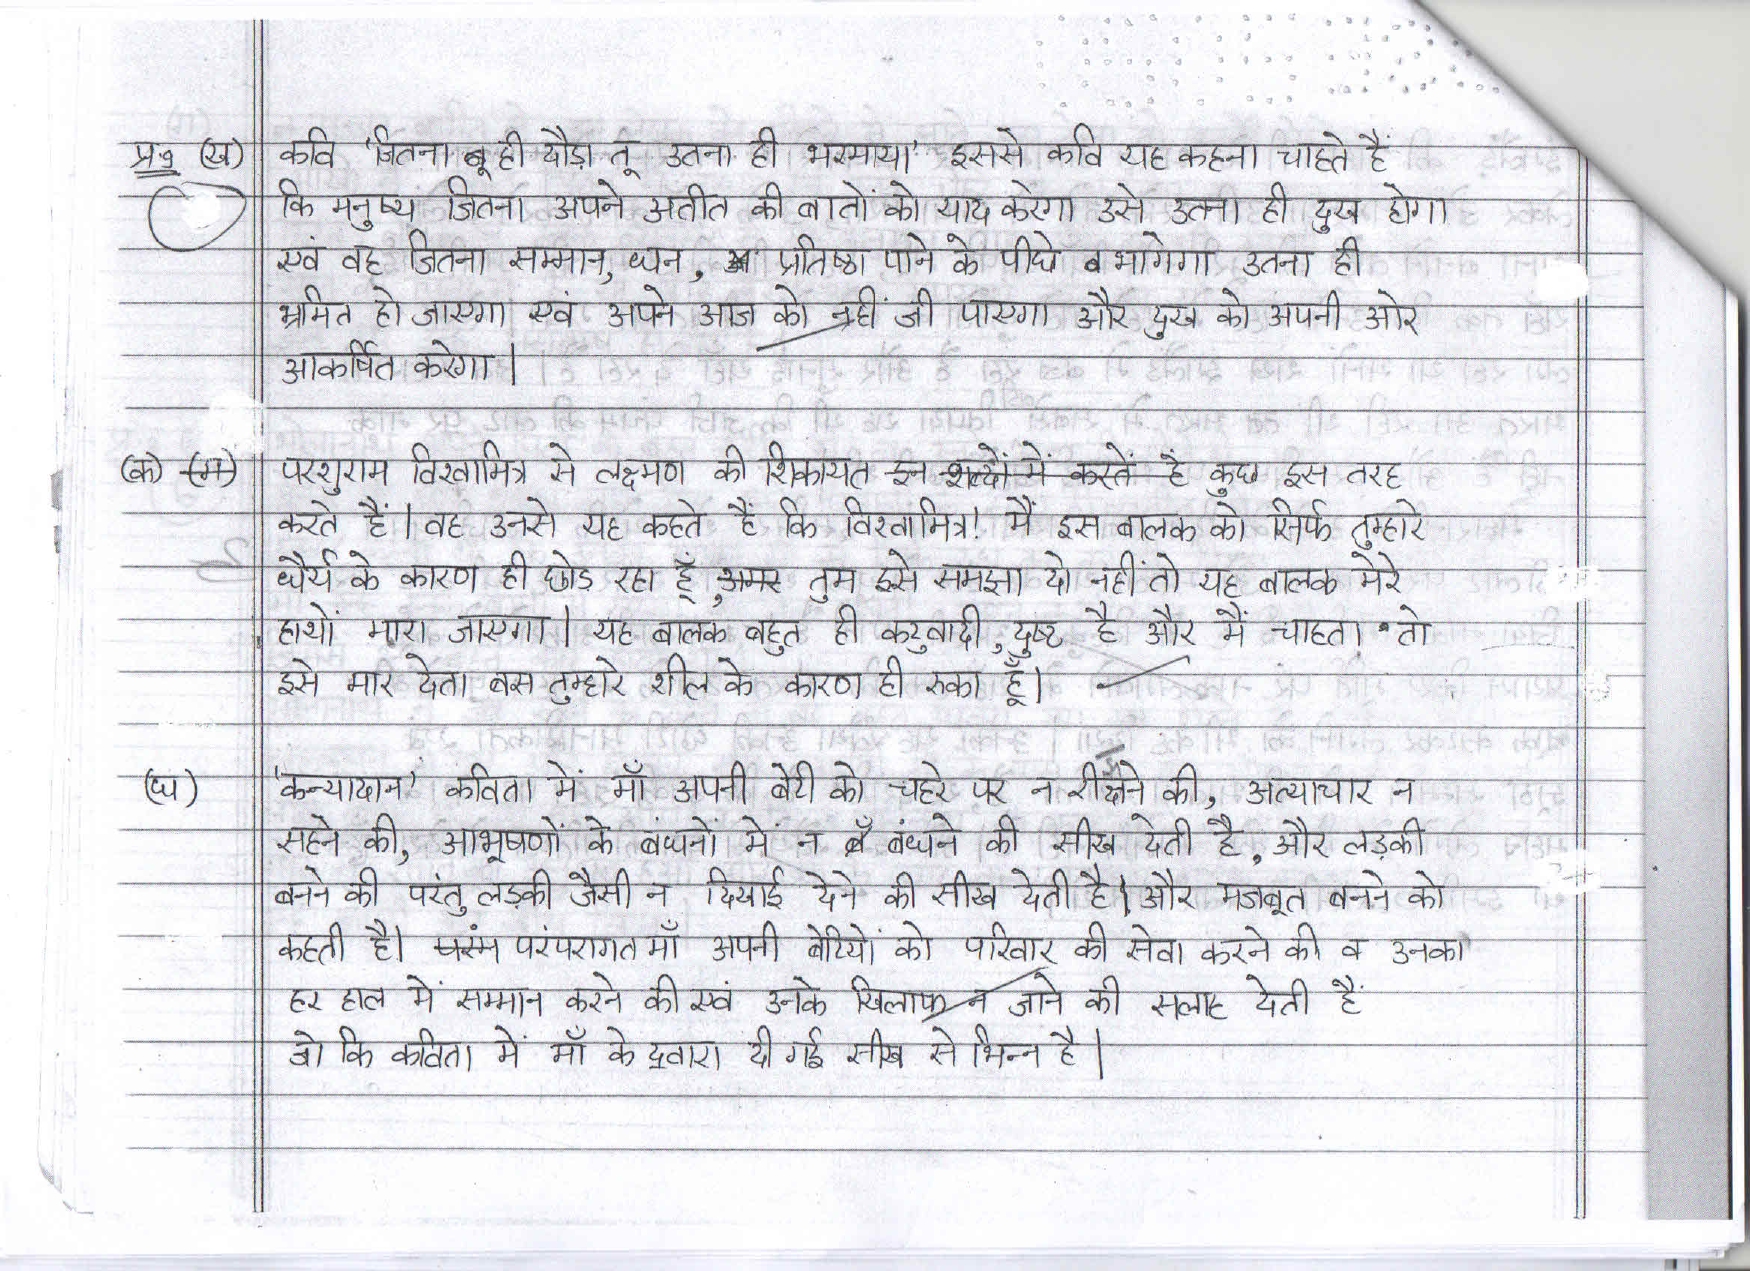 प्र9 (ख) कवि 'जितना ही दौड़ा तू उतना ही भरमाया' इससे कवि यह कहना चाहते हैं
कि मनुष्य जितना अपने अतीत की बातों को याद करेगा उसे उतना ही दुख होगा
एवं वह जितना सम्मान, धन, प्रतिष्ठा पाने के पीछे भागेगा उतना ही
भ्रमित हो जाएगा एवं अपने आज को नहीं जी पाएगा और दुख को अपनी ओर
आकर्षित करेगा।
(क) परशुराम विश्वामित्र से लक्ष्मण की शिकायत इन शब्दों में करतें है कुछ इस तरह
करते हैं। वह उनसे यह कहते हैं कि विश्वामित्र! मैं इस बालक को सिर्फ तुम्हारे
धैर्य के कारण ही छोड़ रहा हूँ, अगर तुम इसे समझा दो नहीं तो यह बालक मेरे
हाथों मारा जाएगा। यह बालक बहुत ही कटुवादी, दुष्ट है और मैं चाहता तो
इसे मार देता बस तुम्हारे शील के कारण ही रुका हूँ।
(घ) 'कन्यादान' कविता में माँ अपनी बेटी को चहरे पर न रीझने की, अत्याचार न
सहने की, आभूषणों के बंधनों में न बंधने की सीख देती है, और लड़की
बनने की परंतु लड़की जैसी न दिखाई देने की सीख देती है। और मजबूत बनने को
कहती है। परंपरागत माँ अपनी बेटियों को परिवार की सेवा करने की व उनका
हर हाल में सम्मान करने की एवं उनके खिलाफ न जाने की सलाह देती हैं
जो कि कविता में माँ के द्वारा दी गई सीख से भिन्न है।